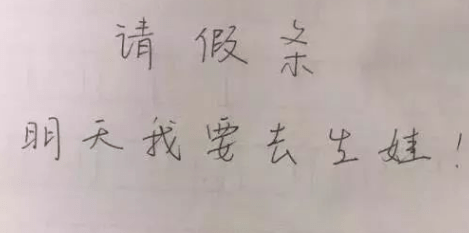 请假条
明天我要去生娃！